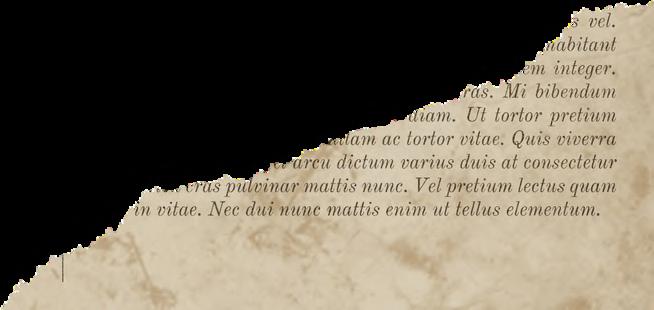 vel.
habitant
integer.
Mi bibendum
diam. Ut tortor pretium
ac tortor vitae. Quis viverra
arcu dictum varius duis at consectetur
cras pulvinar mattis nunc. Vel pretium lectus quam
in vitae. Nec dui nunc mattis enim ut tellus elementum.